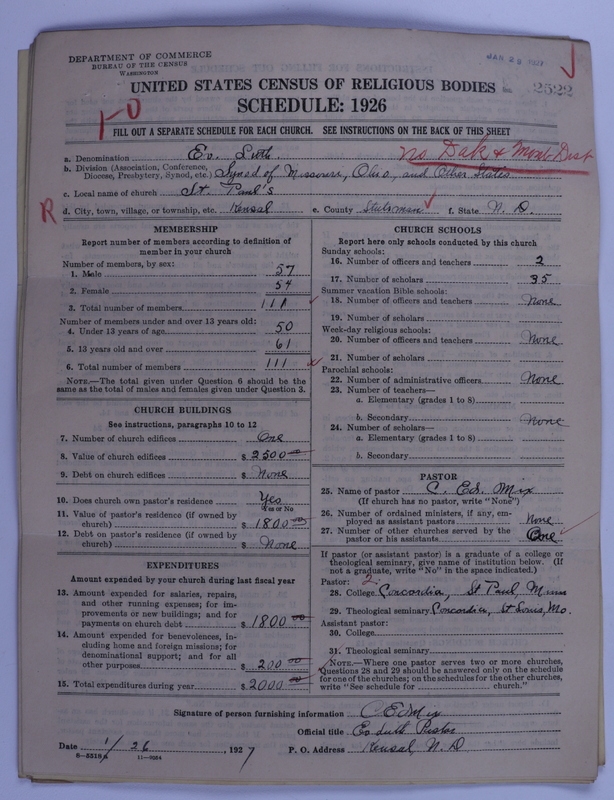 DEPARTMENT OF COMMERCE
BUREAU OF THE CENSUS
WASHINGTON
JAN 29 1927
2522
UNITED STATES CENSUS OF RELIGIOUS BODIES
SCHEDULE: 1926
1-0
FILL OUT A SEPARATE SCHEDULE FOR EACH CHURCH. SEE INSTRUCTIONS ON THE BACK OF THIS SHEET
No Dak & Mont Dist
a. Denomination Ev. Luth.
b. Division (Association, Conference, Diocese, Presbytery, Synod, etc.) Synod of Missouri, Ohio, and Other States
c. Local name of church St. Paul's
R
d. City, town, village, or township, etc. Kensal e. County Stutsman f. State N. D.
MEMBERSHIP
Report number of members according to definition of
member in your church
Number of members, by sex:
1. Male 57
2. Female 54
3. Total number of members 111
Number of members under and over 13 years old:
4. Under 13 years of age 50
5. 13 years old and over 61
6. Total number of members 111
NOTE.—The total given under Question 6 should be
same as the total of males and females given under Question 3.
CHURCH BUILDINGS
See instructions, paragraphs 10 to 12
7. Number of church edifices One
8. Value of church edifices $ 2500 00
9. Debt on church edifices $ None
10. Does church own pastor's residence Yes
Yes or No
11. Value of pastor's residence (if owned by
church) $ 1800 00
12. Debt on pastor's residence (if owned by
church) $ None
EXPENDITURES
Amount expended by your church during last fiscal year
13. Amount expended for salaries, repairs,
and other running expenses; for im-
provements or new buildings; and for
payments on church debt $ 1800 00
14. Amount expended for benevolences, in-
cluding home and foreign missions; for
denominational support; and for all
other purposes $ 200 00
15. Total expenditures during year $ 2000 00
CHURCH SCHOOLS
Report here only schools conducted by this church
Sunday schools:
16. Number of officers and teachers 2
17. Number of scholars 35
Summer vacation Bible schools:
18. Number of officers and teachers None
19. Number of scholars
Week-day religious schools:
20. Number of officers and teachers None
21. Number of scholars
Parochial schools:
22. Number of administrative officers None
23. Number of teachers—
a. Elementary (grades 1 to 8)
b. Secondary None
24. Number of scholars—
a. Elementary (grades 1 to 8)
b. Secondary
PASTOR
25. Name of pastor C. Ed. Mix
(If church has no pastor, write "None")
26. Number of ordained ministers, if any, em-
ployed as assistant pastors None
27. Number of other churches served by the
pastor or his assistants One
If pastor (or assistant pastor) is a graduate of a college or
theological seminary, give name of institution below. (If
not a graduate, write "No" in the space indicated.)
Pastor: 2
28. College Concordia, St Paul, Minn
29. Theological seminary Concordia, St Louis, Mo.
Assistant pastor:
30. College
31. Theological seminary
NOTE.—Where one pastor serves two or more churches,
Questions 28 and 29 should be answered only on the schedule
for one of the churches; on the schedules for the other churches,
write "See schedule for church."
Signature of person furnishing information C Ed Mix
Official title Ev Luth Pastor
Date 1/26, 1927 P. O. Address Kensal N. D
8-5518a 11-9054